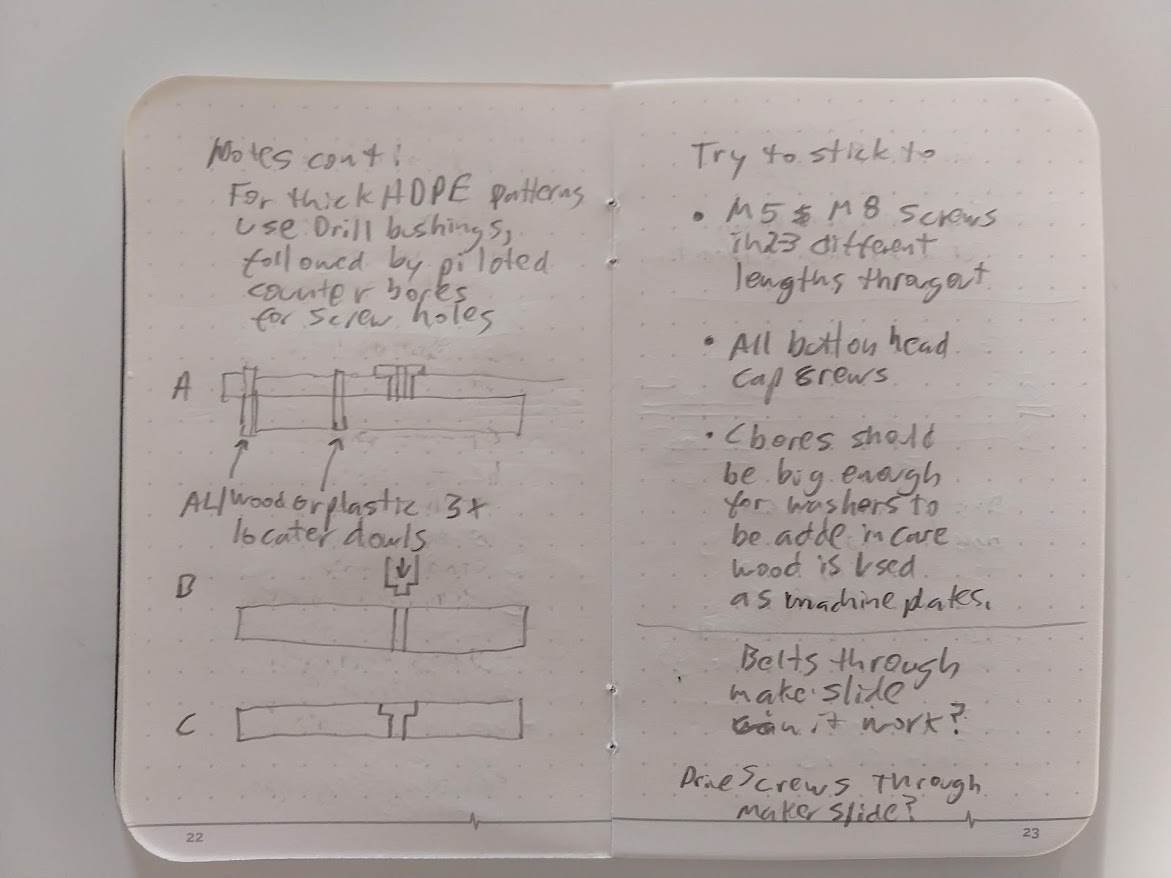 Notes cont:
For thick HDPE patterns
use Drill bushings,
followed by piloted
counter bores
for screw holes
A
AL/Wood or plastic 3x
locater dowls
B
C
22
Try to stick to
• M5 & M8 screws
in 2-3 different
lengths througout
• All button head
cap screws
• Cbores should
be big enough
for washers to
be adde in case
wood is used
as machine plates.
Belts through
make slide
can it work?
Drive Screws through
maker slide?
23